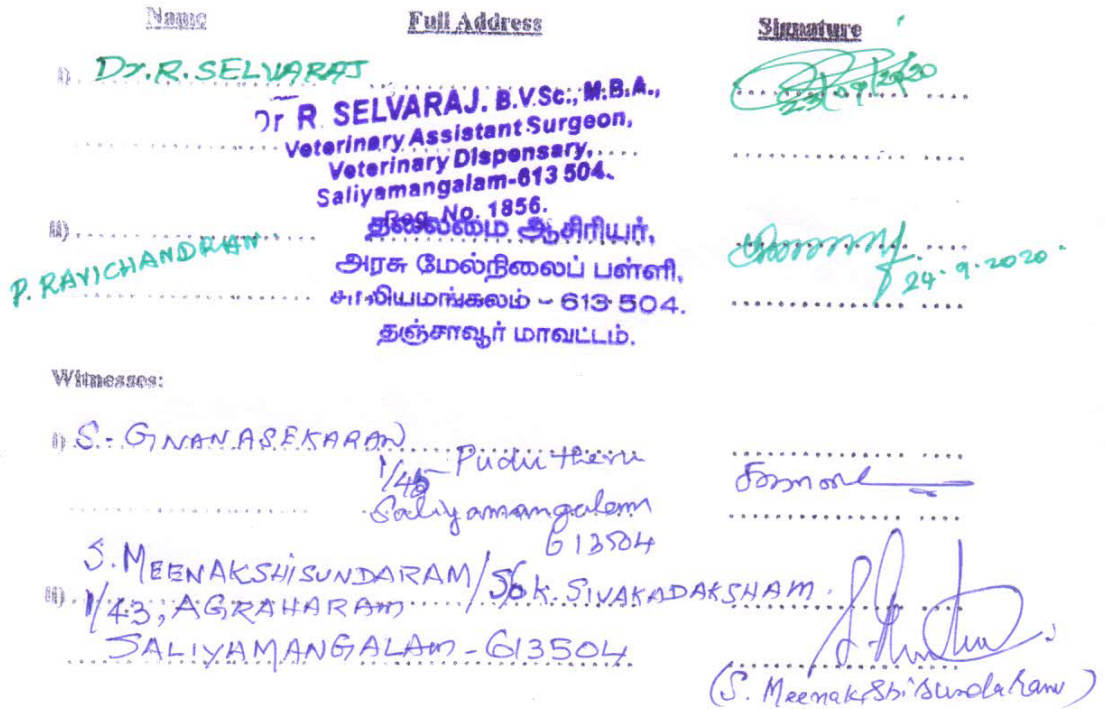 Name Full Address Signature
i) Dr. R. SELVARAJ
23/09/2020
Dr R. SELVARAJ. B.V.Sc., M.B.A.,
Veterinary Assistant Surgeon,
Veterinary Dispensary,
Saliyamangalam-613 504.
Reg. No. 1856.
ii) P. RAVICHANDRAN
தலைமை ஆசிரியர்,
அரசு மேல்நிலைப் பள்ளி,
சாலியமங்கலம் - 613 504.
தஞ்சாவூர் மாவட்டம்.
24-9-2020
Witnesses:
i) S. GNANASEKARAN
1/45 Pudu theru
Saliyamangalam
613504
ii) S. MEENAKSHISUNDARAM / S/o K. SIVAKADAKSHAM.
1/43, AGRAHARAM
SALIYAMANGALAM - 613504
(S. Meenakshi Sundaram)